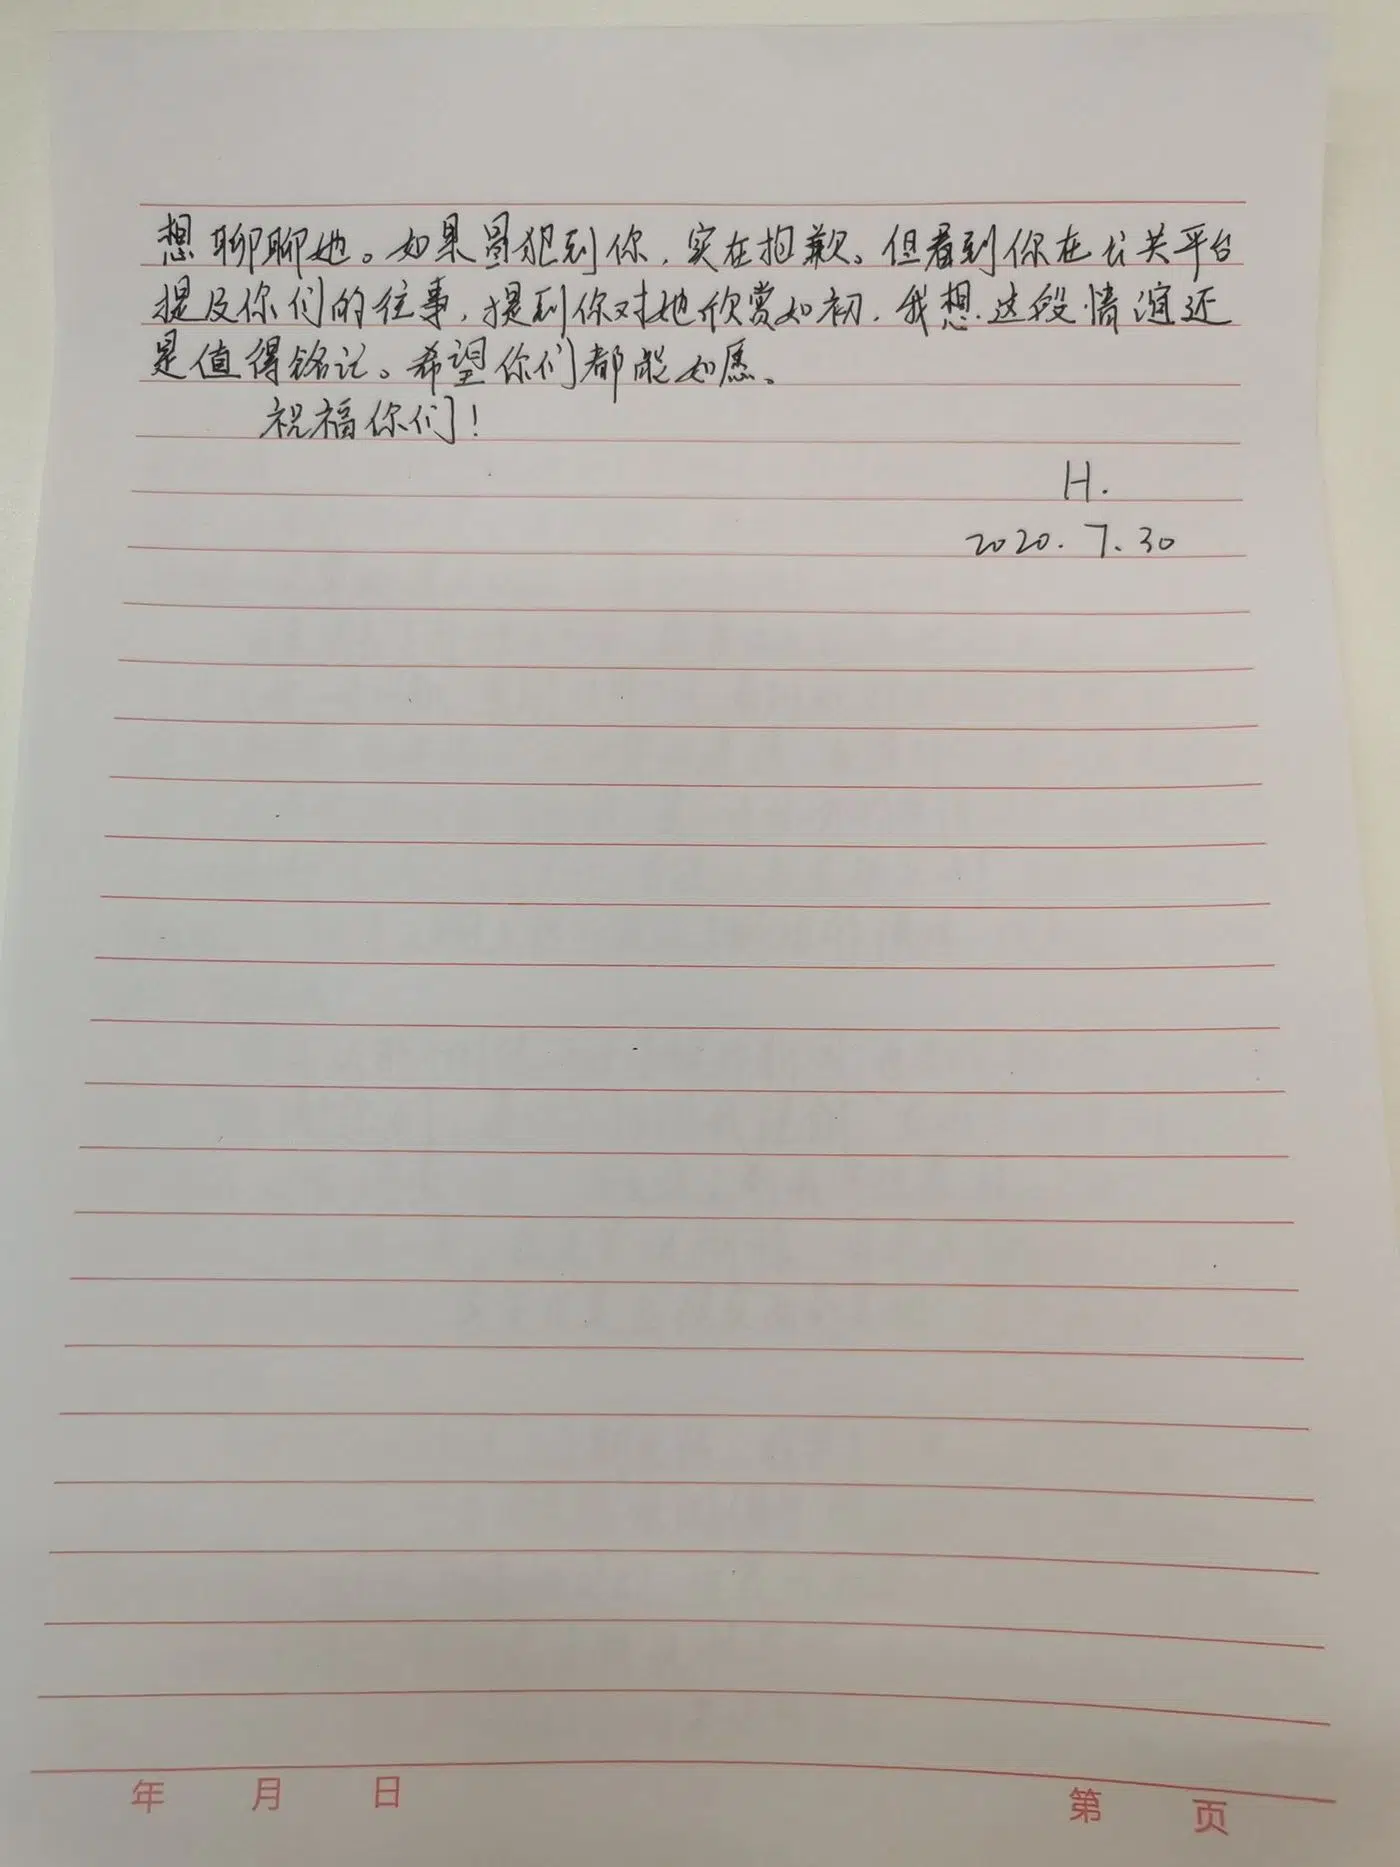 想聊聊她。如果冒犯到你，实在抱歉。但看到你在公共平台
提及你们的往事，提到你对她欣赏如初，我想这段情谊还
是值得铭记。希望你们都能如愿。
祝福你们！
H.
2020.7.30
年 月 日 第 页